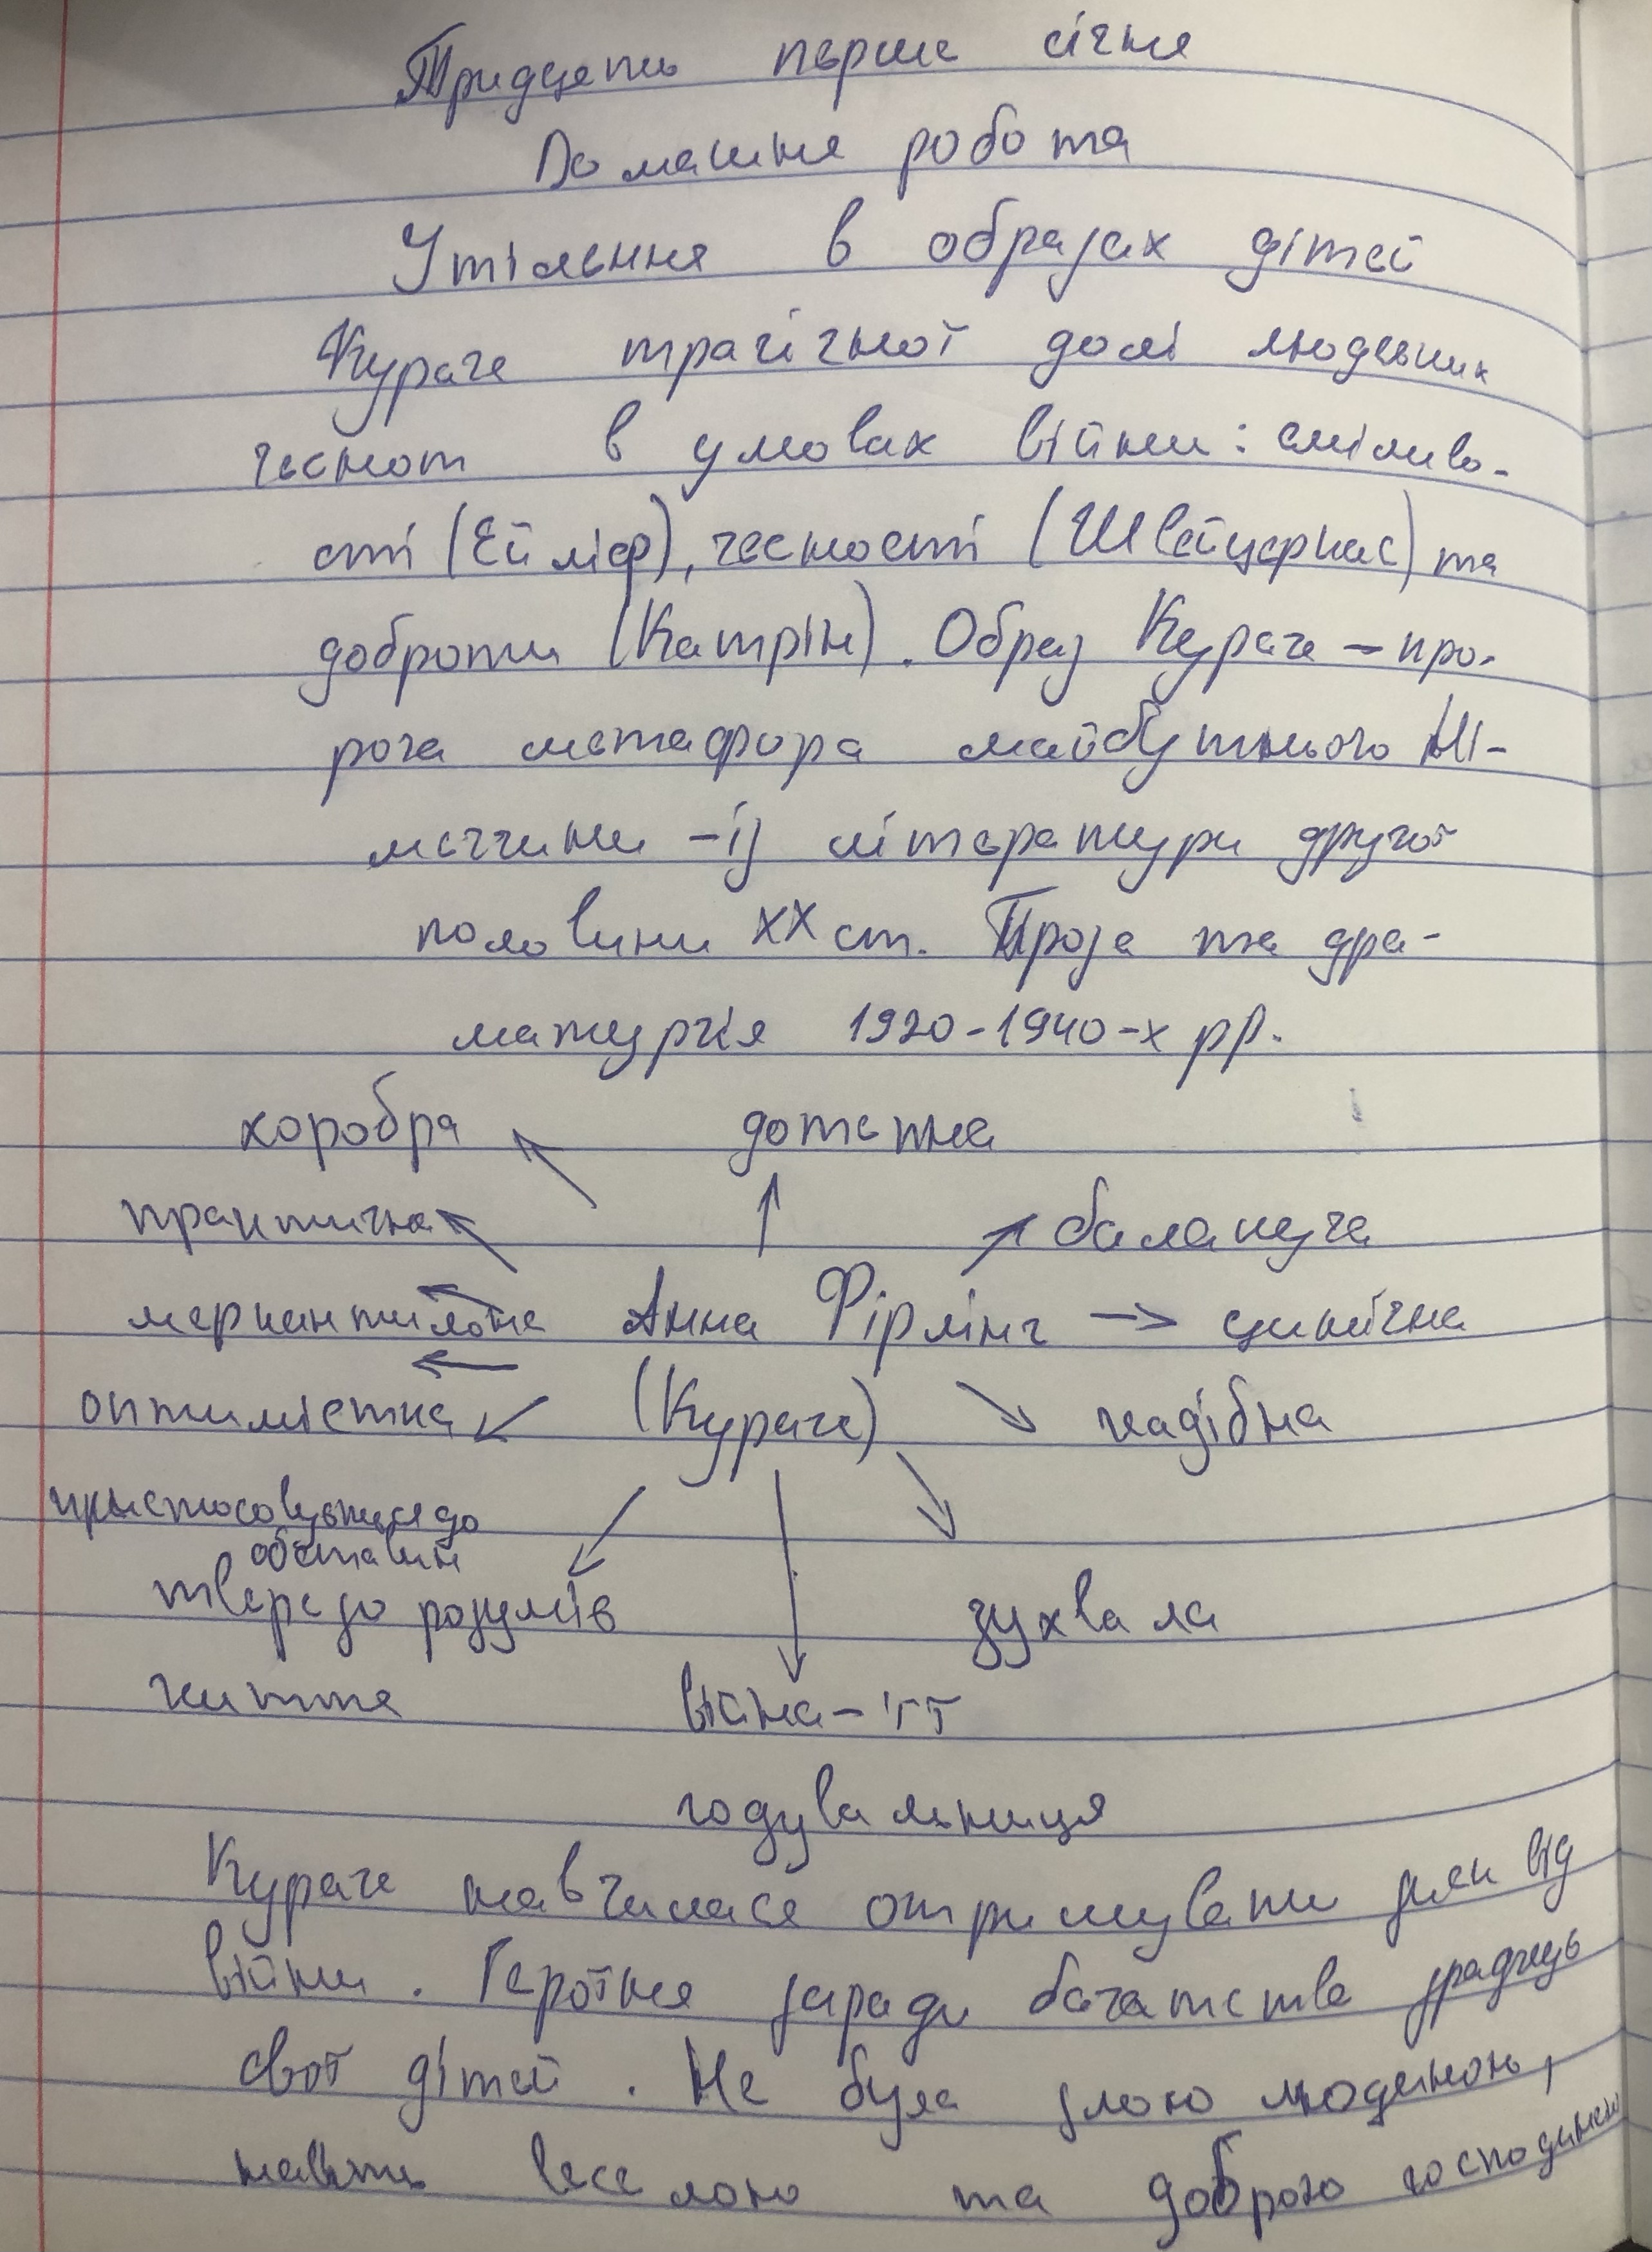 Тридцять перше січня
Домашня робота
Утілення в образах дітей
Кураж трагічної долі людських
чеснот в умовах війни: сміливо-
сті (Ейліф), чесності (Швейцеркас) та
доброти (Катрін). Образ Кураж – про-
роча метафора майбутнього Ні-
меччини – із літератури другої
половини ХХ ст. Проза та дра-
матургія 1920-1940-х рр.
хоробра дотепна
практична балакуча
меркантильна Анна Фірлінг → цинічна
оптимістка (Кураж) жадібна
пристосовується до
обставин
тверезо розуміє зухвала
життя війна – її
годувальниця
Кураж навчилася отримувати зиск від
війни. Героїня заради багатства зраджує
свої дітей. Не була злою людиною,
навіть веселою та доброю господинею